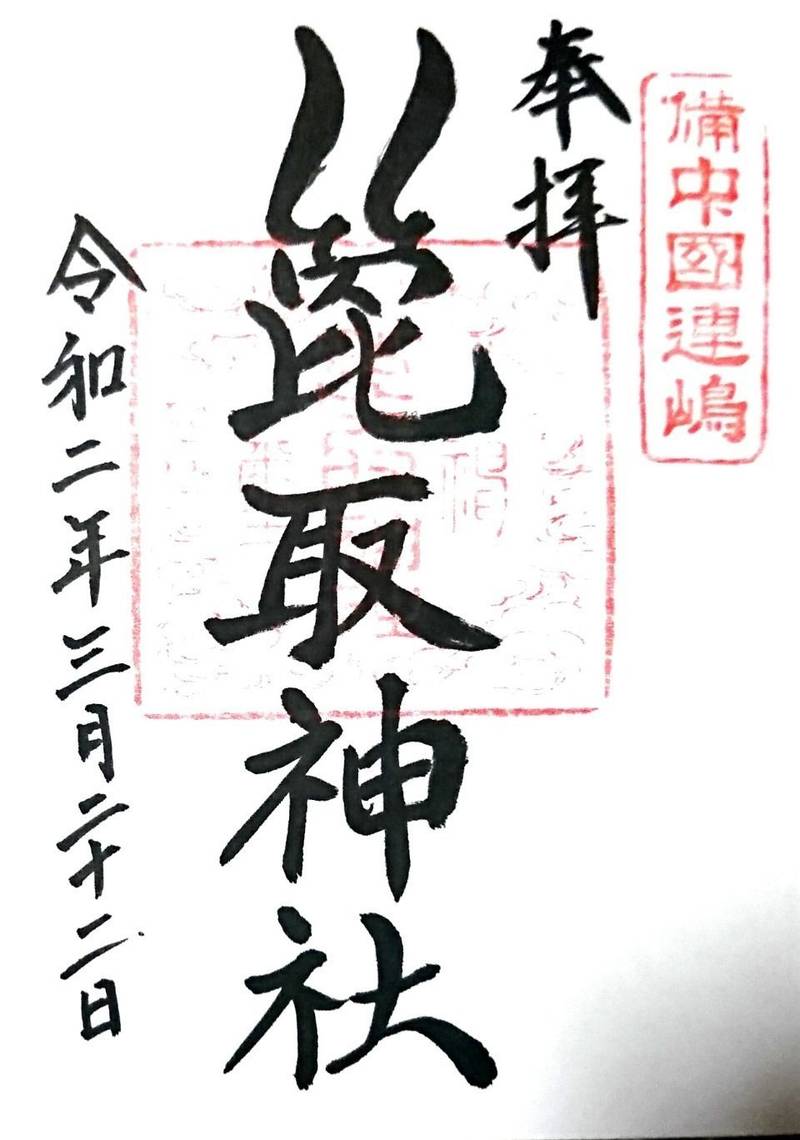 備中國連嶋
奉拝
箆取神社
令和二年三月二十二日